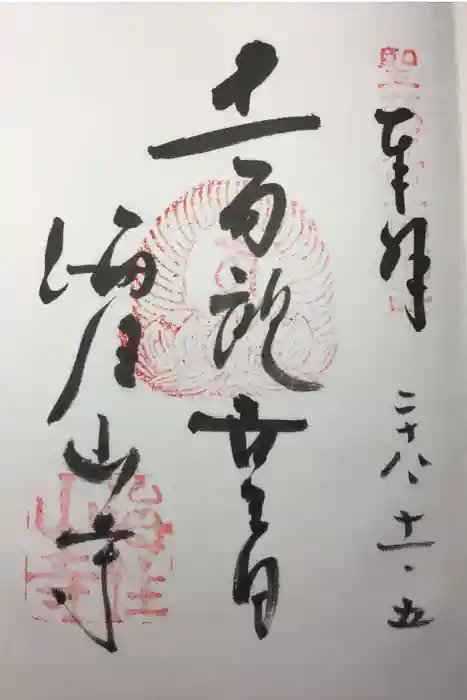 奉拝
二十八・十一・五
十一面観世音
海住山寺
海住
山寺